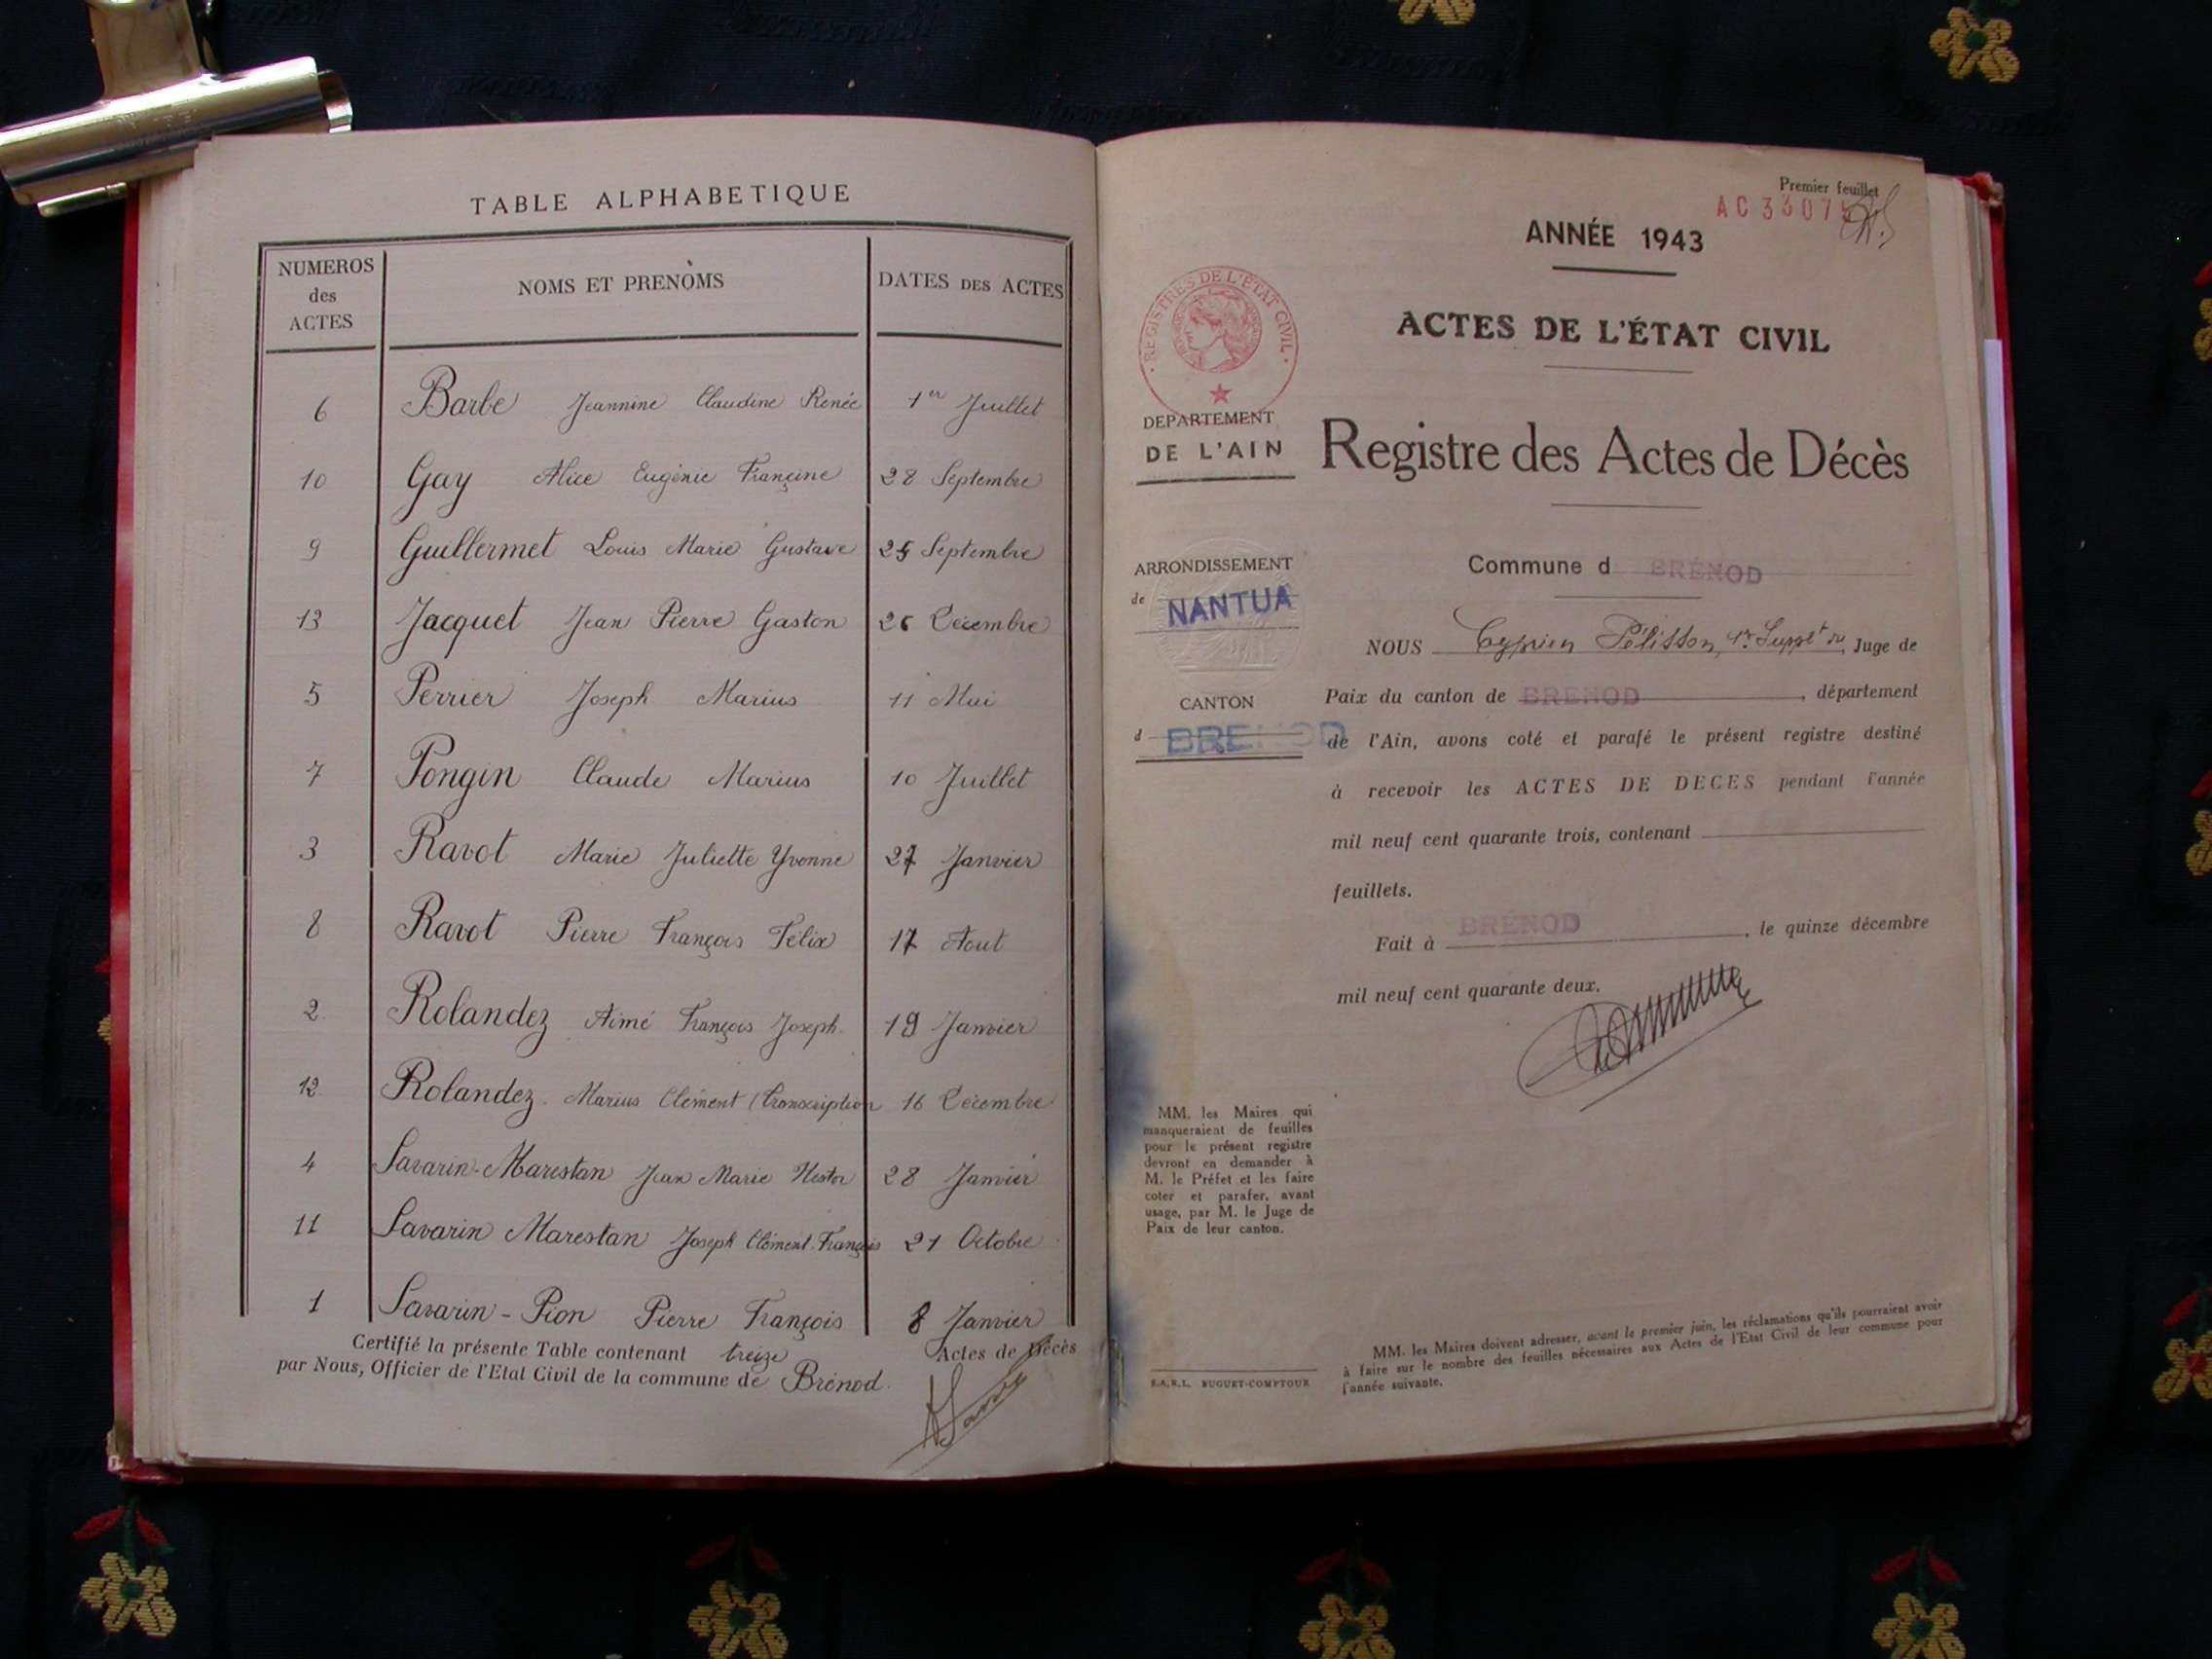 TABLE ALPHABETIQUE
NUMEROS
des
ACTES
NOMS ET PRENOMS
DATES DES ACTES
6 Barbe Jeannine Claudine Renée 1er Juillet
10 Gay Alice Eugénie Françine 28 Septembre
9 Guillermet Louis Marie Gustave 25 Septembre
13 Jacquet Jean Pierre Gaston 26 Décembre
5 Perrier Joseph Marius 11 Mai
7 Pongin Claude Marius 10 Juillet
3 Ravot Marie Juliette Yvonne 27 Janvier
8 Ravot Pierre François Félix 17 Aout
2 Rolandez Aimé François Joseph 19 Janvier
12 Rolandez Marius Clément (transcription 16 Décembre
4 Savarin-Marestan Jean Marie Nestor 28 Janvier
11 Savarin Marestan Joseph Clément François 21 Octobre
1 Savarin-Pion Pierre François 8 Janvier
Certifié la présente Table contenant treize Actes de Décès
par Nous, Officier de l'Etat Civil de la commune de Brénod.
Premier feuillet
AC 3307
ANNÉE 1943
ACTES DE L'ÉTAT CIVIL
REGISTRES DE L'ÉTAT CIVIL
DEPARTEMENT
DE L'AIN
Registre des Actes de Décès
ARRONDISSEMENT
de NANTUA
CANTON
d BRENOD
Commune d BRÉNOD
NOUS Cyprien Pélisson, 1er Supplt du Juge de
Paix du canton de BRENOD, département
de l'Ain, avons coté et parafé le présent registre destiné
à recevoir les ACTES DE DECES pendant l'année
mil neuf cent quarante trois, contenant
feuillets.
Fait à BRÉNOD, le quinze décembre
mil neuf cent quarante deux.
MM. les Maires qui
manqueraient de feuilles
pour le présent registre
devront en demander à
M. le Préfet et les faire
coter et parafer, avant
usage, par M. le Juge de
Paix de leur canton.
S.A.R.L. BUGUET-COMPTOUR
MM. les Maires doivent adresser, avant le premier juin, les réclamations qu'ils pourraient avoir
à faire sur le nombre des feuilles nécessaires aux Actes de l'Etat Civil de leur commune pour
l'année suivante.